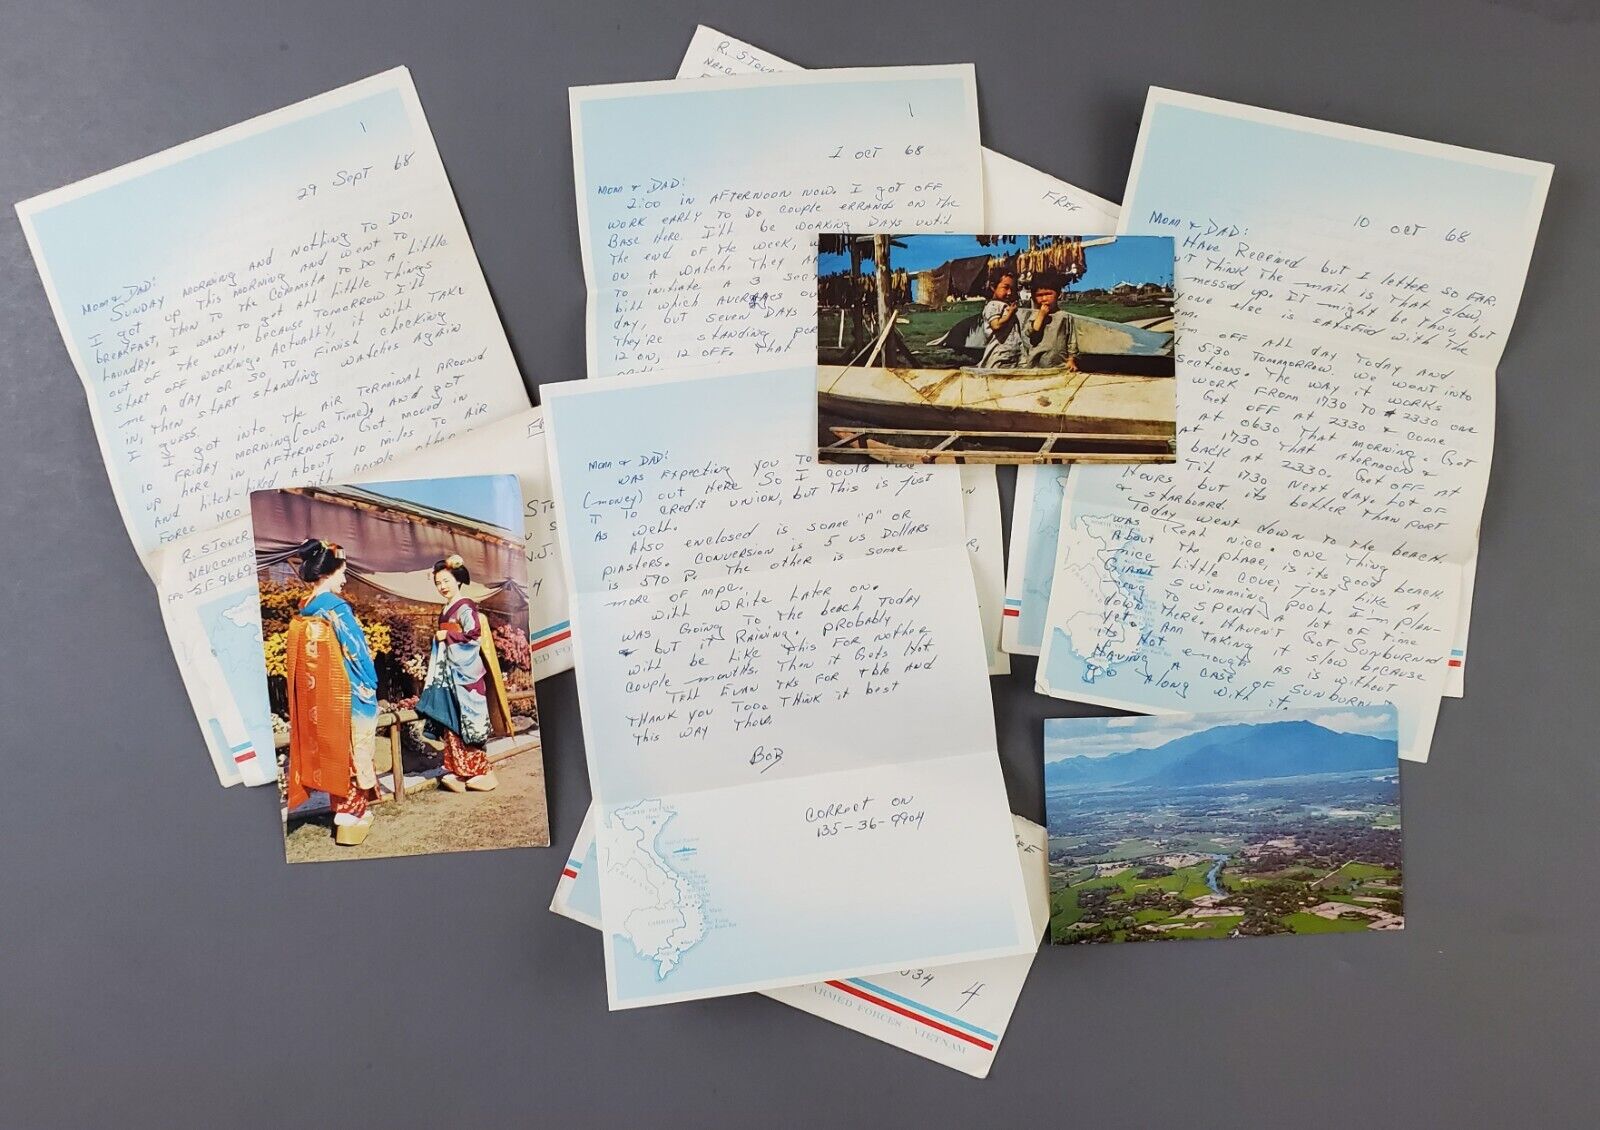 1
29 Sept 68
Mom & Dad:
Sunday morning and nothing to do.
I got up this morning and went to
breakfast, then to the Commsta to do a little
laundry. I want to get all little things
out of the way, because tomorrow I'll
start off working. Actually, it will take
me a day or so to finish checking
in, then start standing watches again
I guess.
I got into the air terminal around
10 Friday morning (our time) and got
up here in afternoon. Got moved in
and hitch-hiked about 10 miles to Air
Force NCO with couple other
R. Stover
NAVCOMMS
FPO-SF-96693
R. Stover
1
1 Oct 68
Mom & Dad:
2:00 in afternoon now. I got off
work early to do couple errands on the
base here. I'll be working days until
the end of the week,
on a watch. They
to initiate a 3
bill which averages
day, but seven days
They're standing
12 on, 12 off. That
Free
N.J.
4
Mom & Dad:
was expecting you to
(money) out here so I could
it to credit union, but this is just
as well.
Also enclosed is some "P" or
piasters. Conversion is 5 US Dollars
is 590 P. The other is some
more of MPC.
Will write later on.
was going to the beach today
but it raining. Probably
will be like this for nother
couple months. Then it gets hot
Tell Evan tks for tbk and
thank you too. Think it best
this way thou.
Bob
Correct on
135-36-9904
NORTH VIETNAM
THAILAND
CAMBODIA
10 Oct 68
Mom & Dad:
Have received but 1 letter so far.
think the mail is that slow,
messed up. It might be thou, but
else is satisfied with the
off all day today and
5:30 tomorrow. We went into
sections. The way it works
work from 1730 to 2330 one
Get off at 2330 & come
at 0630 that morning. Got
at 1730 that afternoon &
back at 2330. Get off at
til 1730 next day. Lot of
hours but its better than port
& starboard.
Today went down to the beach.
was real nice. One thing
about the phage, is its good beach
nice little cove; just like a
giant swimming pool. I'm plan-
ing to spend a lot of time
down there. Haven't got sunburned
yet. Ann taking it slow because
its not enough as is without
having a case of sunburn
along with it.
NORTH VIETNAM
ARMED FORCES
4
ARMED FORCES - VIETNAM